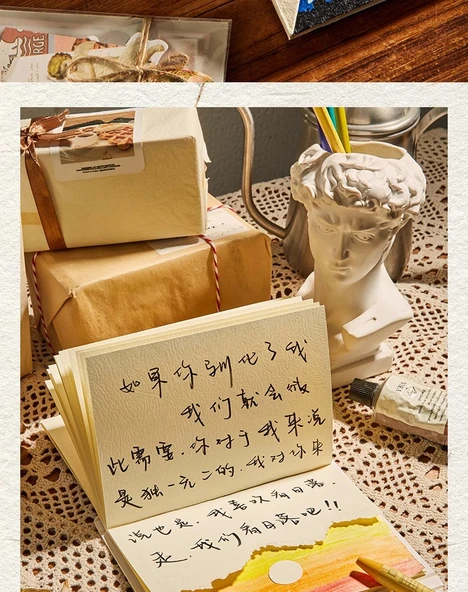 如果你驯化了我
我们就会彼
此需要.你对于我来说
是独一无二的.我对你来
说也是.我喜欢看日落.
走.我们看日落吧!!